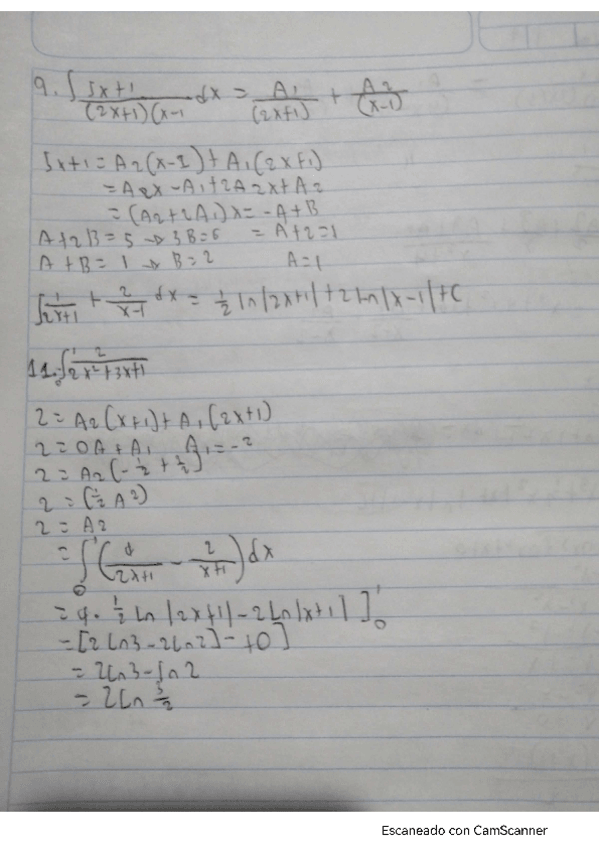 9. ∫ 5x+1/(2x+1)(x-1 dx = A1/(2x+1) + A2/(x-1)
5x+1 = A2(x-1)+A1(2x+1)
= A2x-A1+2A2x+A2
= (A2+2A1)x=-A+B
A+2B=5 → 3B=6 = A+2=1
A+B=1 → B=2 A=1
∫ 1/2x+1 + 2/x-1 dx = 1/2 ln|2x+1|+2ln|x-1|+C
11. ∫₀¹ 2/2x²+3x+1
2 = A2(x+1)+A1(2x+1)
2 = 0A+A1 A1=-2
2 = A2(-1/2+1/2)
2 = (1/2 A2)
2 = A2
= ∫₀¹ (4/2x+1 - 2/x+1) dx
= 4·1/2 ln|2x+1|-2ln|x+1| ]₀¹
= [2ln3-2ln2]-+0]
= 2ln3-ln2
= 2ln 3/2
Escaneado con CamScanner